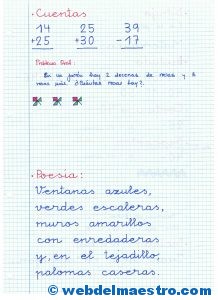 · Cuentas
14 25 39
+25 +30 -17
Problema oral:
En un jarrón hay 2 decenas de rosas y 6
rosas más. ¿Cuántas rosas hay?
· Poesía:
Ventanas azules,
verdes escaleras,
muros amarillos
con enredaderas
y, en el tejadillo,
palomas caseras.
© webdelmaestro.com